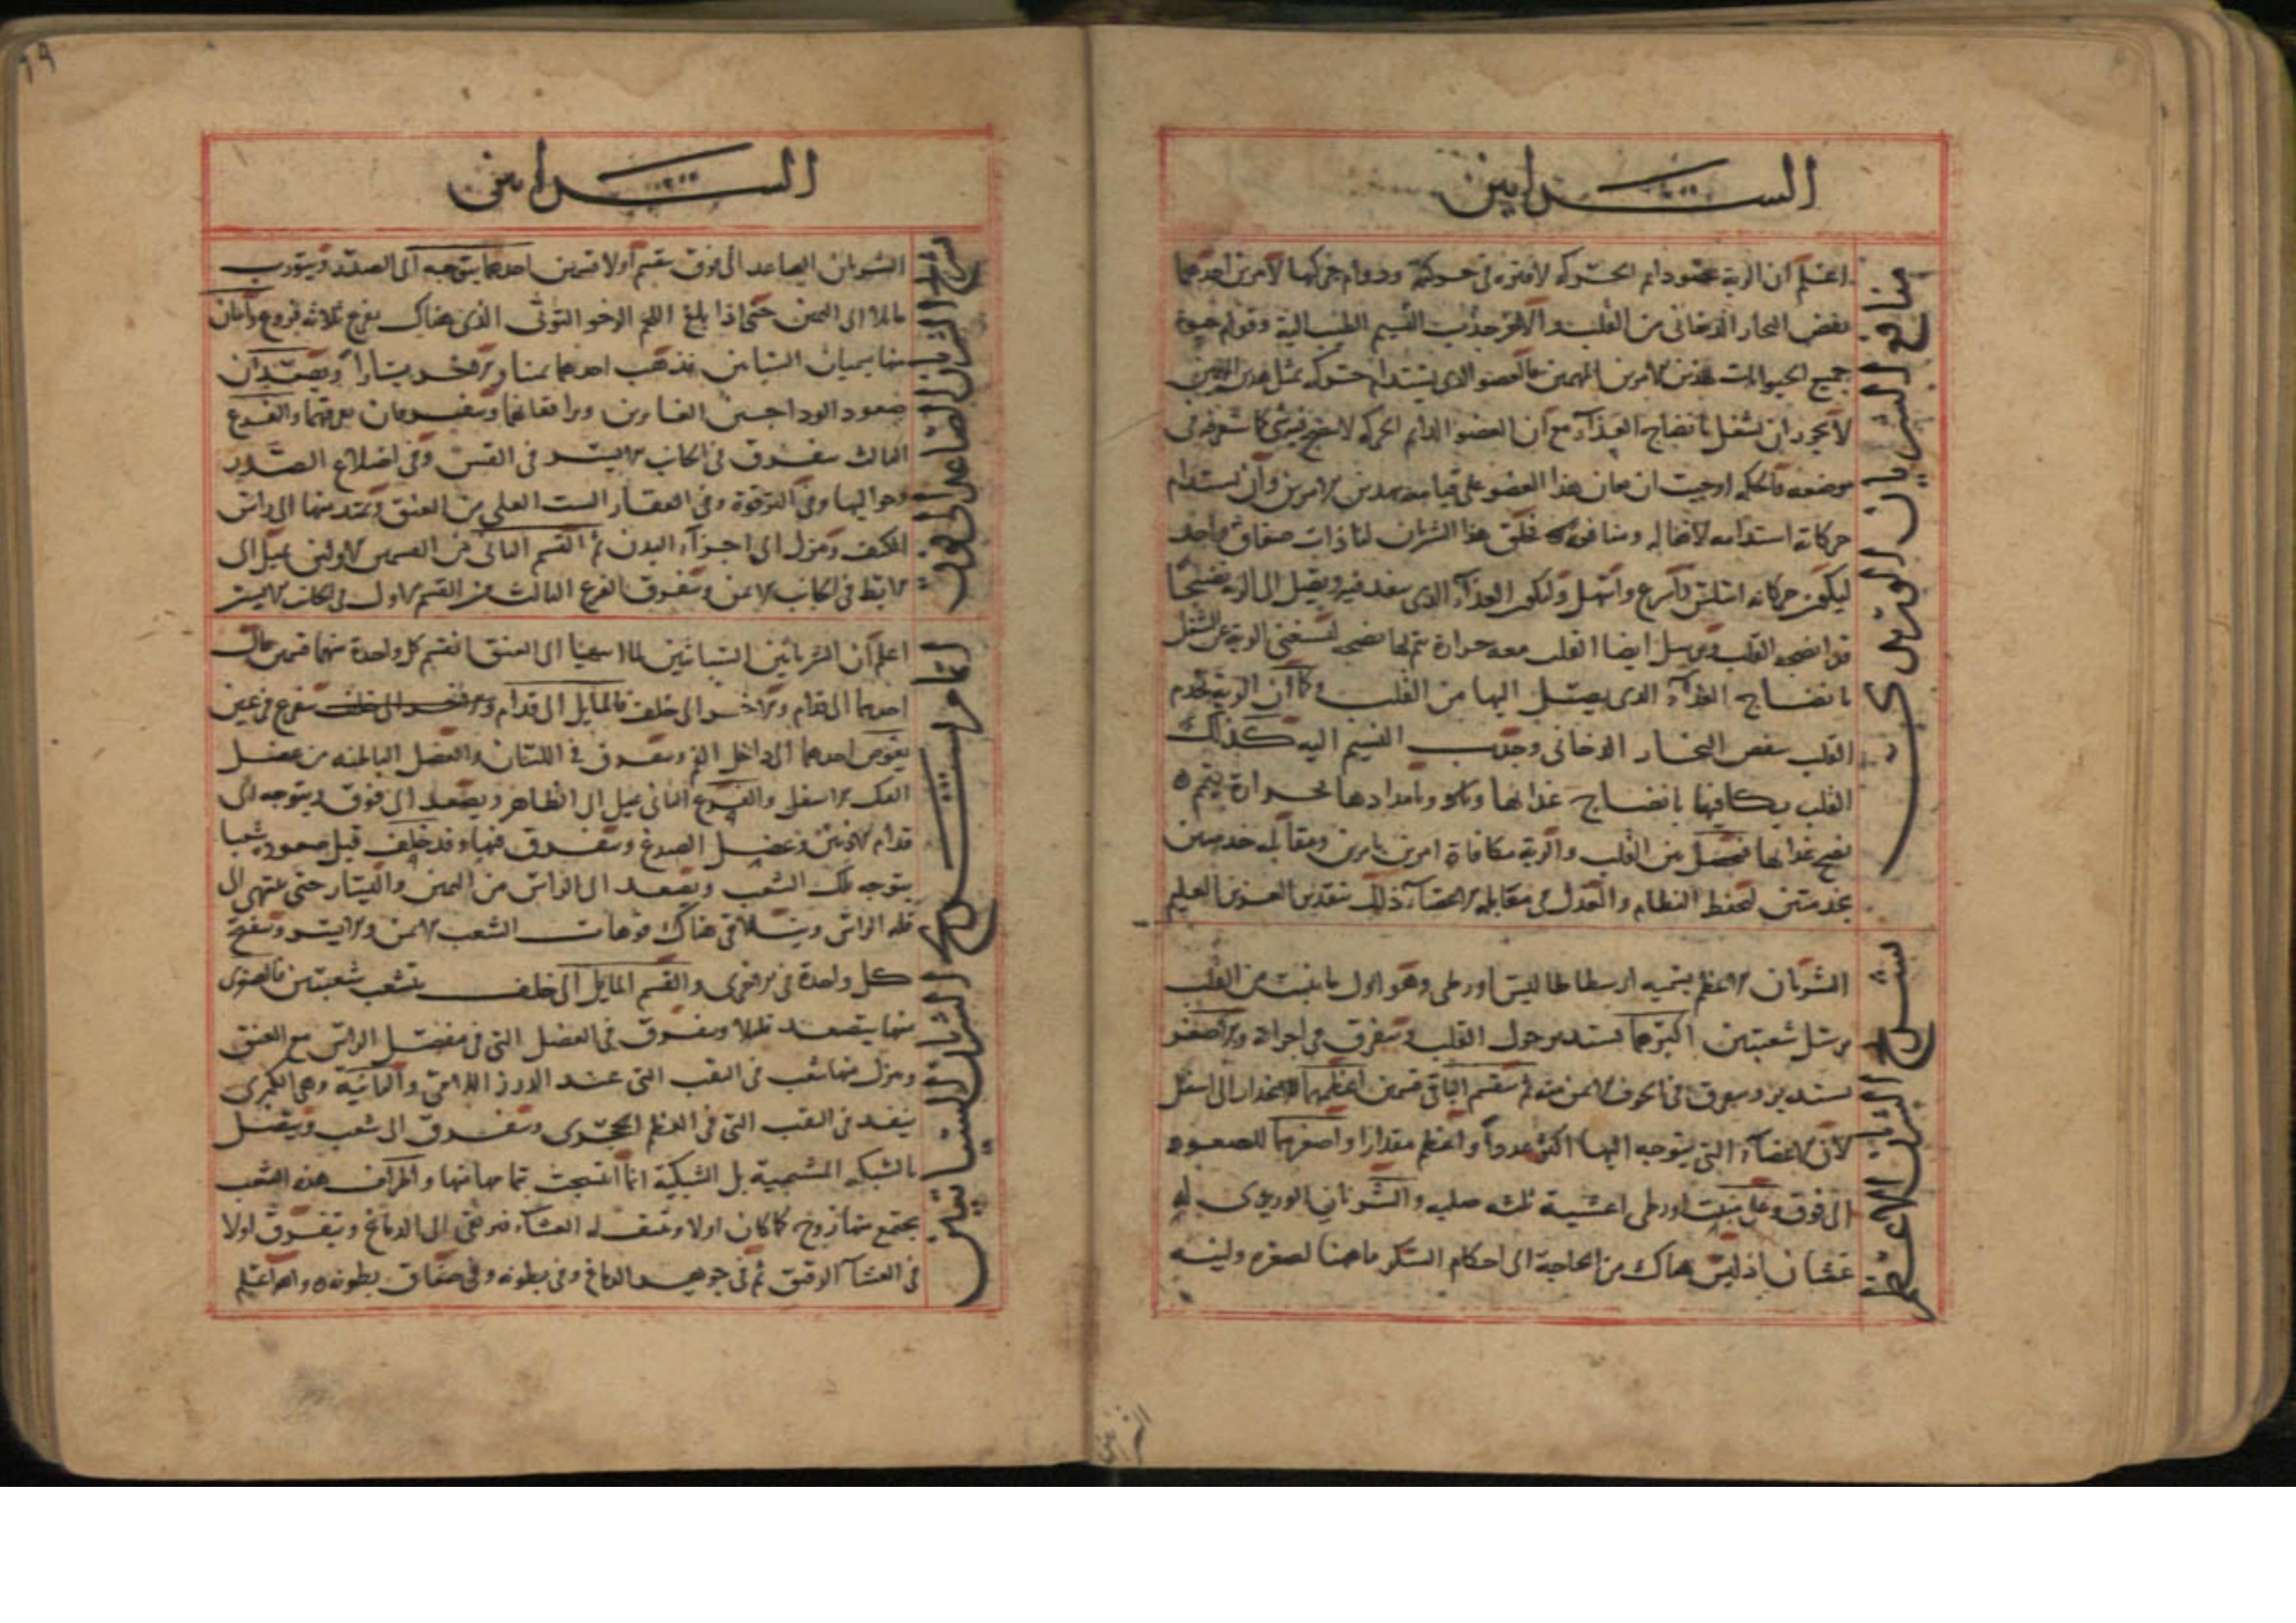 الشرايين
منافع الشريان الوريدي
اعلم ان الرية عضو دايم الحركه لا فتره في حركته ودوام حركتها لامرين احدهما
نفض البخار الدخاني من القلب والآخر جذب النسيم الطيب اليه وقوام حيوة
جميع الحيوانات بهذين الامرين المهمين فالعضو الذي يستدام حركته بمثل هذين
لا يجوز ان يشغل بانضاج الغذآء مع ان العضو الدايم الحركه لا ينضج فيه شي كما شرف في
موضعه فالحكمه اوجبت ان يعان هذا العضو على قيامه بهذين الامرين وان يستدام
حركاته استدامه لافعاله ومنافعه فخلق هذا الشريان لنا ذات صفاق واحد
ليكون حركاته اسلس واسرع واسهل وليكون الغذآء الذي ينفذ فيه ويصل الى الرية نضيجا
قد انضجه القلب ويرسل ايضا القلب معه حرارة يتم بها نضجه لتستغني الرية عن الشغل
بانضاج الغذآء الذي يصل اليها من القلب وكما ان الرية تخدم
القلب بنفض البخار الدخاني وجذب النسيم اليه كذلك
القلب يكافيها بانضاج غذائها وبامدادها بحرارة يتم ٥
نضج غذائها فحصل بين القلب والرية مكافاة امرين بامرين ومقابله خدمتين
بخدمتين لحفظ النظام والعدل في مقابله الاعضآء ذلك تقدير العزيز العليم
شرح الشريان الاعظم
الشريان الاعظم يسميه ارسطاطاليس اورطي وهو اول ما ينبت من القلب
يرسل شعبتين اكبرهما تستدير حول القلب وتتفرق في اجزائه والاصغر
تستدير وتتفرق في التجويف الايمن منه ثم ينقسم الباقي قسمين اعظمهما للانحدار الى اسفل
لان الاعضآء التي يتوجه اليها اكثر عددا واعظم مقدارا واصغرهما للصعود
الى فوق وعلى منبت اورطي اغشية ثلثه صلبه والشرياني الوريدي له
غشان اذ ليس هناك من الحاجة الى احكام السكر ما هنا لصغره ولينه
الشرايين
الشرايين
شرح الشريان الصاعد الى فوق
الشريان الصاعد الى فوق ينقسم اولا قسمين احدهما يتوجه الى الصدر ويتورب
مائلا الى اليمين حتى اذا بلغ اللحم الرخو التوثي الذي هناك يفرع ثلاثه فروع واثنان
منها يسميان السباتين يذهب احدهما يمنا والآخر يسارا ويصعدان
صعود الوداجين الغايرين ويرافقانهما ويتفرعان بفرعهما والفرع
الثالث يتفرق في الجانب الايسر في القس وفي اضلاع الصدر
وحواليها وفي الترقوة وفي الفقار الست العلى من العنق ويمتد منها الى راس
الكتف وينزل الى اجزآء البدن ثم القسم الثاني من القسمين الاولين يميل الى
الابط في الجانب الايمن ويتفرق تفرع الثالث من القسم الاول في الجانب الايسر
تمام شرح الشريانين السباتيين
اعلم ان الشريانين السباتيين لما انتهيا الى العنق انقسم كل واحدة منهما قسمين مال
احدهما الى قدام والآخر الى خلف فالمايل الى قدام والآخر الى خلف يتفرع فرعين
يغوص احدهما الى داخل الفم ويتفرق في اللسان والعضل الباطنه من عضل
الفك الاسفل والفرع الثاني يميل الى الظاهر ويصعد الى فوق ويتوجه الى
قدام الاذنين وعضل الصدغ ويتفرق فيها وقد خلف قبل صعوده شعبا
يتوجه تلك الشعب ويصعد الى الراس من اليمين واليسار حتى ينتهي الى
قله الراس ويتلاقى هناك فوهات الشعب الايمن والايسر وينفتح
كل واحدة في الاخرى والقسم المايل الى خلف يتشعب شعبتين فالصغرى
منها يتصعد قليلا ويتفرق في العضل التي في مفصل الراس مع العنق
وينزل منها شعب في الثقب التي عند الدرز اللامي والثانيه وهي الكبرى
ينفذ في الثقب التي في العظم الحجري ويتفرق الى شعب ويتصل
بالشبكه المشيمية بل الشبكية انما انتسجت بتمامها منها واطراف هذه الشعب
يجتمع منها زوج كما كان اولا وينثقب له الغشآء فيرتقى الى الدماغ ويتفرق اولا
في الغشآء الرقيق ثم في جوهر الدماغ وفي بطونه وفي صفاق بطونه ٥ والله اعلم
٦٩